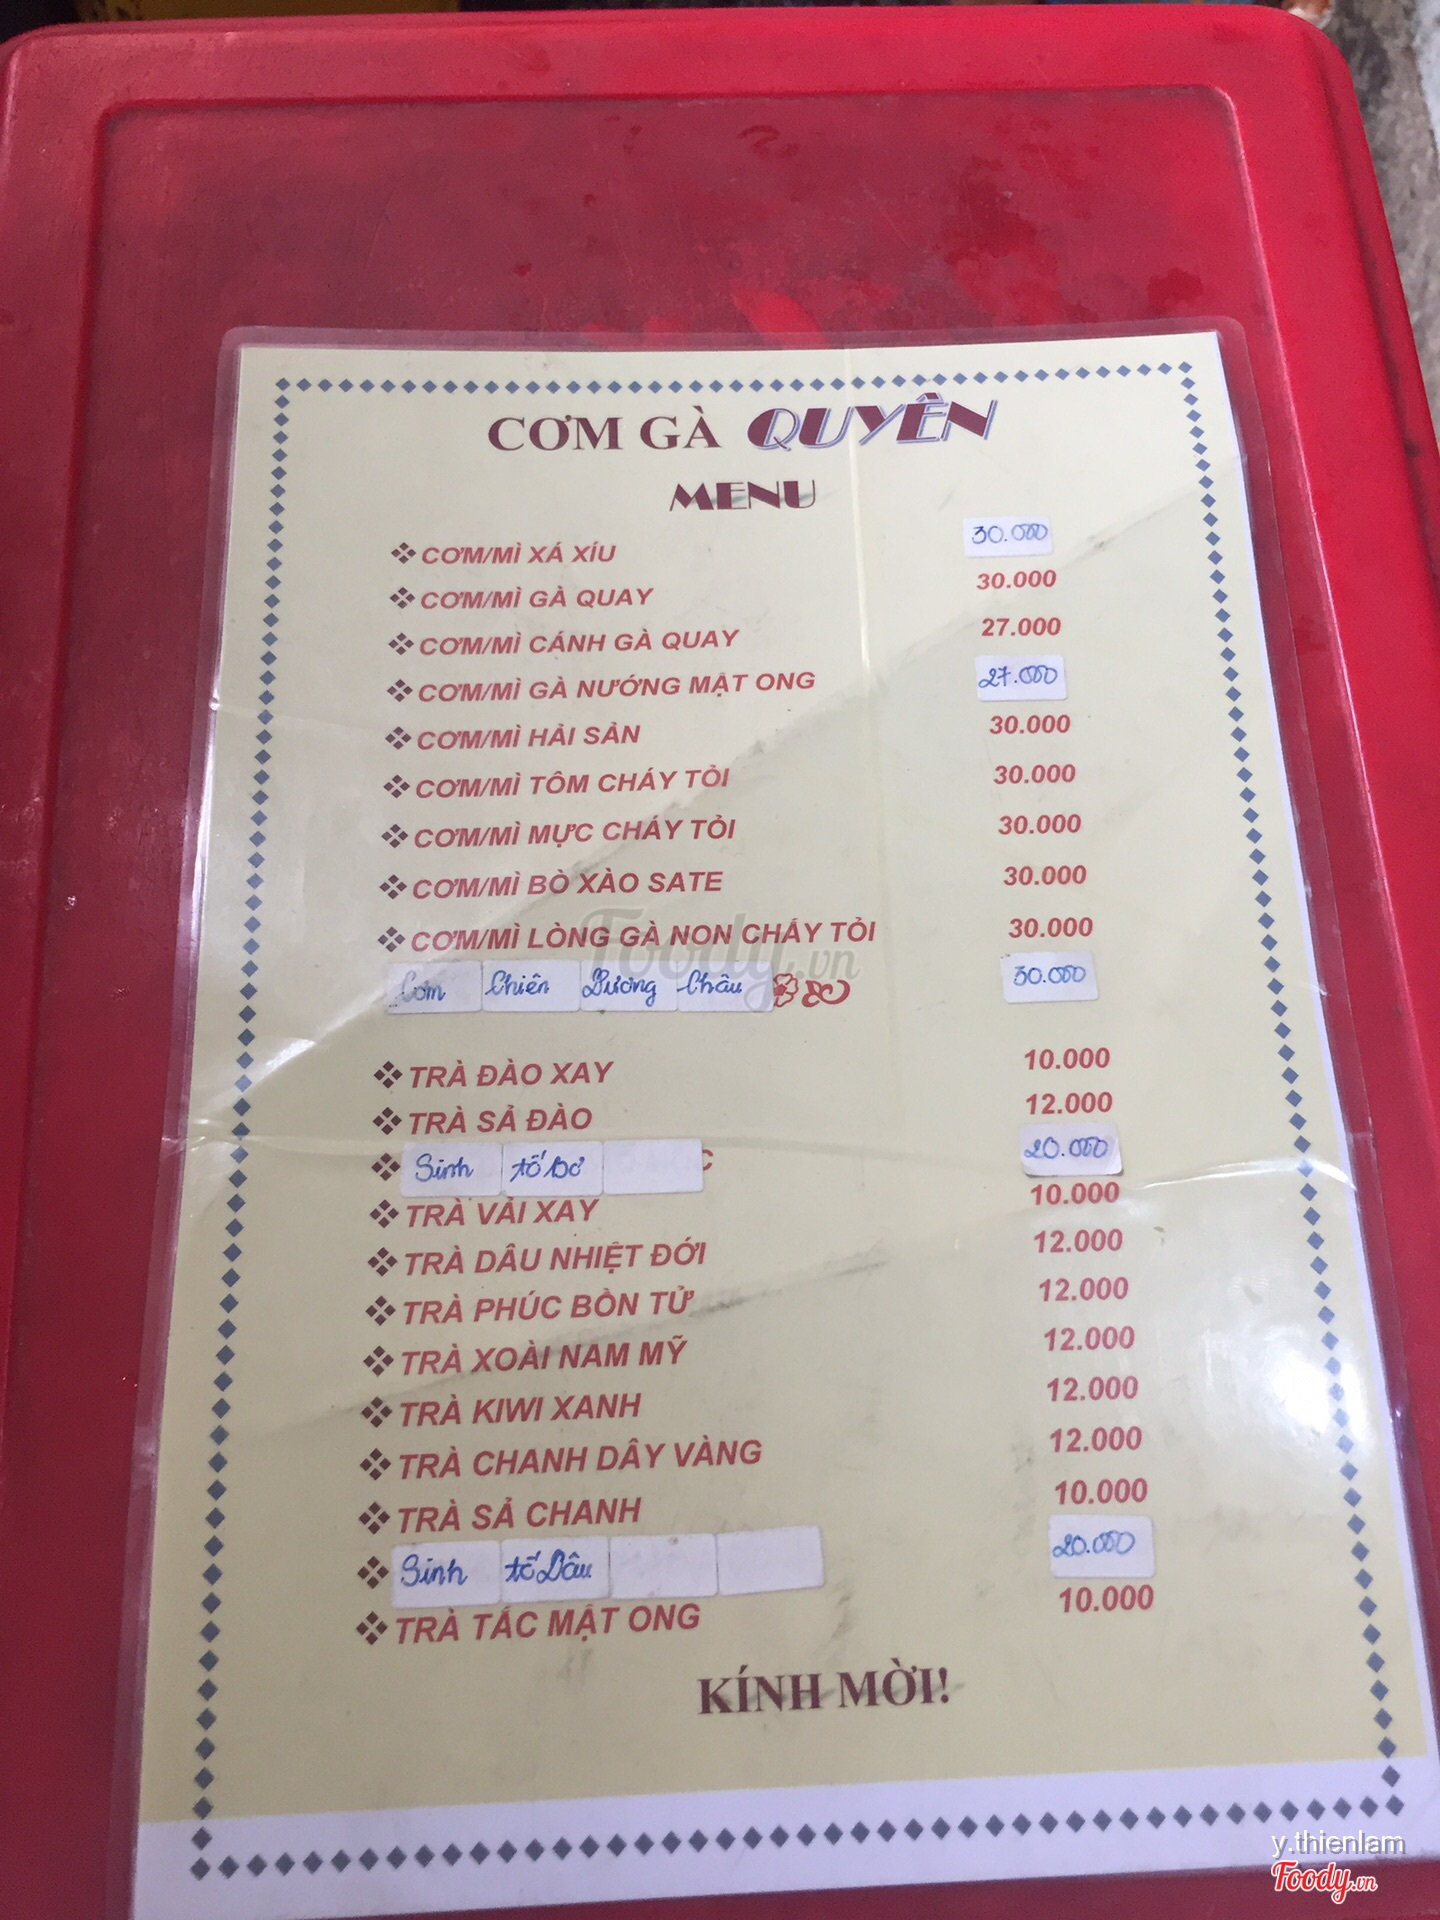 CƠM GÀ QUYÊN
MENU
CƠM/MÌ XÁ XÍU 30.000
CƠM/MÌ GÀ QUAY 30.000
CƠM/MÌ CÁNH GÀ QUAY 27.000
CƠM/MÌ GÀ NƯỚNG MẬT ONG 27.000
CƠM/MÌ HẢI SẢN 30.000
CƠM/MÌ TÔM CHÁY TỎI 30.000
CƠM/MÌ MỰC CHÁY TỎI 30.000
CƠM/MÌ BÒ XÀO SATE 30.000
CƠM/MÌ LÒNG GÀ NON CHÁY TỎI 30.000
Cơm Chiên Dương Châu 30.000
TRÀ ĐÀO XAY 10.000
TRÀ SẢ ĐÀO 12.000
Sinh tố Bơ 20.000
TRÀ VẢI XAY 10.000
TRÀ DÂU NHIỆT ĐỚI 12.000
TRÀ PHÚC BỒN TỬ 12.000
TRÀ XOÀI NAM MỸ 12.000
TRÀ KIWI XANH 12.000
TRÀ CHANH DÂY VÀNG 12.000
TRÀ SẢ CHANH 10.000
Sinh tố Dâu 20.000
TRÀ TẮC MẬT ONG 10.000
KÍNH MỜI!
Foody.vn
y.thienlam
Foody.vn